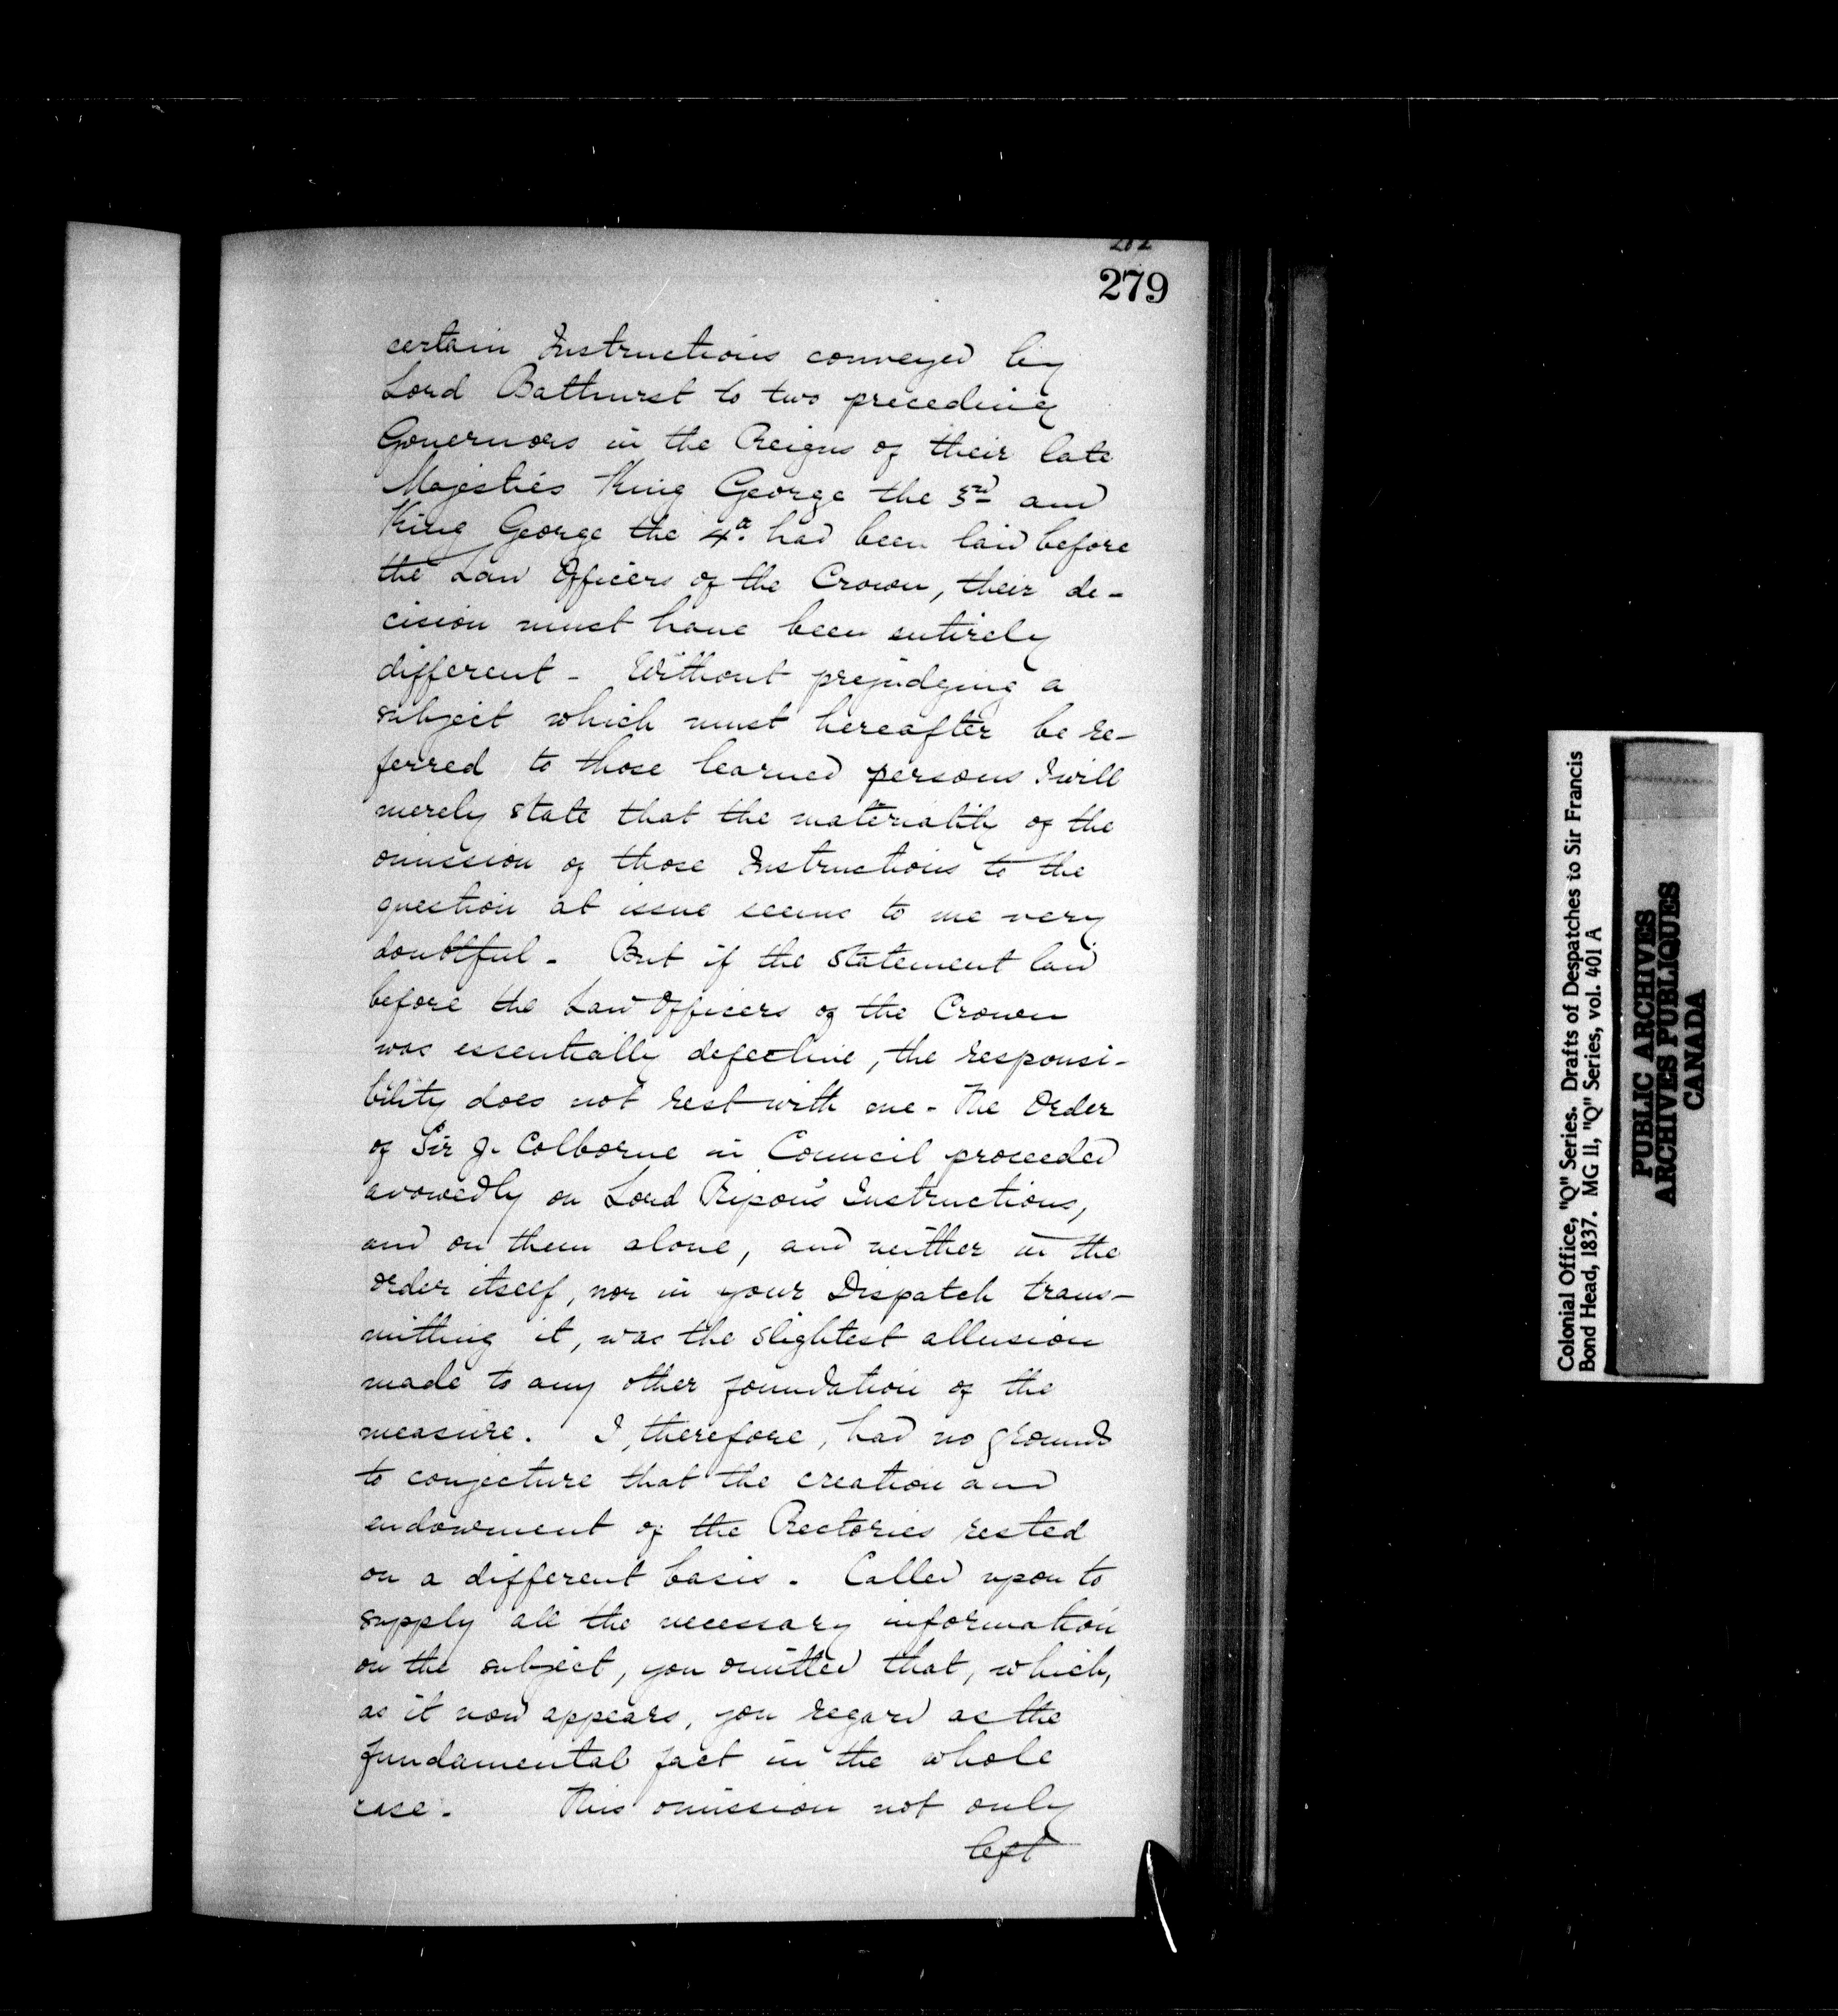 279
certain Instructions conveyed by
Lord Bathurst to two preceding
Governors in the Reigns of their late
Majesties King George the 3rd and
King George the 4th had been laid before
the Law Officers of the Crown, their de-
cision must have been entirely
different - Without prejudging a
subject which must hereafter be re-
ferred to those learned persons I will
merely state that the materiality of the
omission of those Instructions to the
question at issue seems to me very
doubtful - But if the statement laid
before the Law Officers of the Crown
was essentially defective, the responsi-
bility does not rest with me - The Order
of Sir J. Colborne in Council proceeded
avowedly on Lord Ripon's Instructions,
and on them alone, and neither in the
order itself, nor in your Dispatch trans-
mitting it, was the slightest allusion
made to any other foundation of the
measure. I, therefore, had no ground
to conjecture that the creation and
endowment of the Rectories rested
on a different basis. Called upon to
supply all the necessary information
on the subject, you omitted that, which,
as it now appears, you regard as the
fundamental fact in the whole
case. This omission not only
left
Colonial Office, "Q" Series. Drafts of Despatches to Sir Francis
Bond Head, 1837. MG 11, "Q" Series, vol. 401 A
PUBLIC ARCHIVES
ARCHIVES PUBLIQUES
CANADA